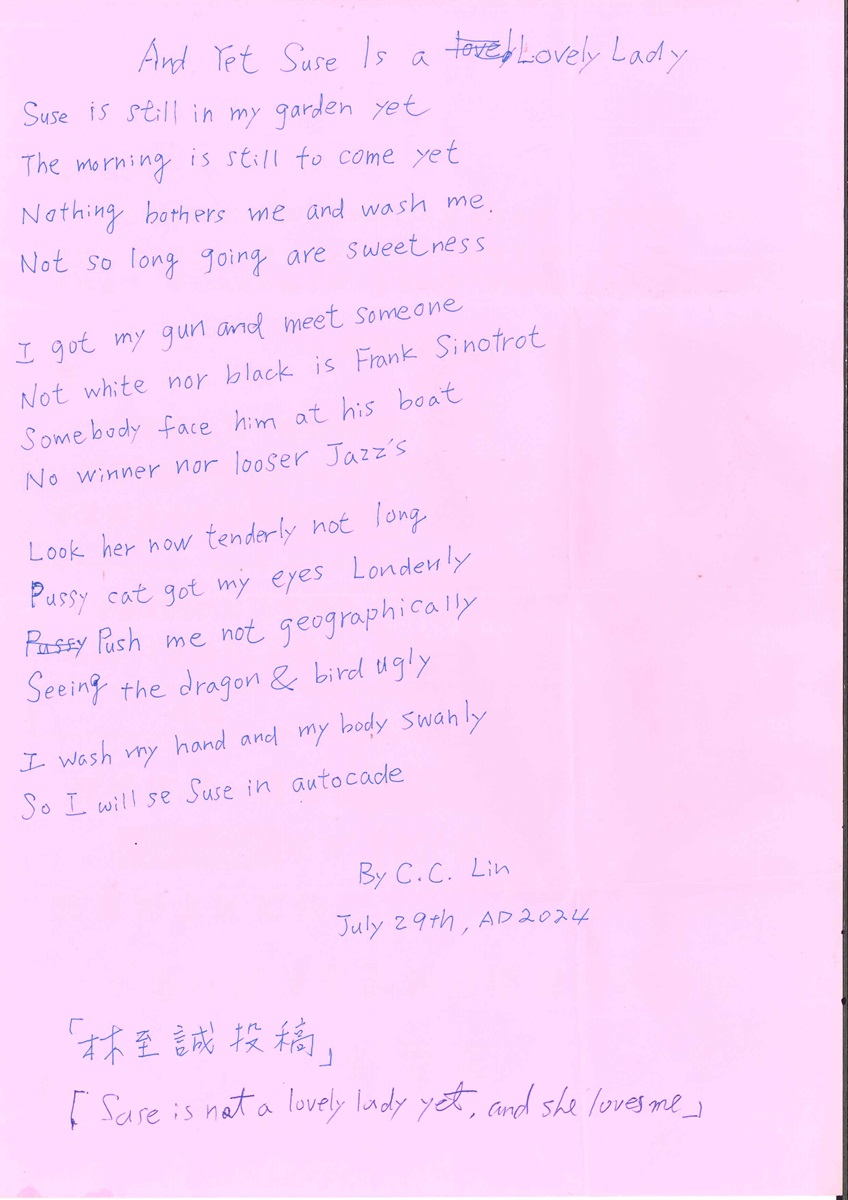 And Yet Suse Is a Lovely Lady
Suse is still in my garden yet
The morning is still to come yet
Nothing bothers me and wash me.
Not so long going are sweetness
I got my gun and meet someone
Not white nor black is Frank Sinotrot
Somebody face him at his boat
No winner nor looser Jazz's
Look her now tenderly not long
Pussy cat got my eyes Londenly
Push me not geographically
Seeing the dragon & bird ugly
I wash my hand and my body swanly
So I will se Suse in autocade
By C.C. Lin
July 29th, AD2024
「林至誠投稿」
「Suse is not a lovely lady yet, and she loves me」